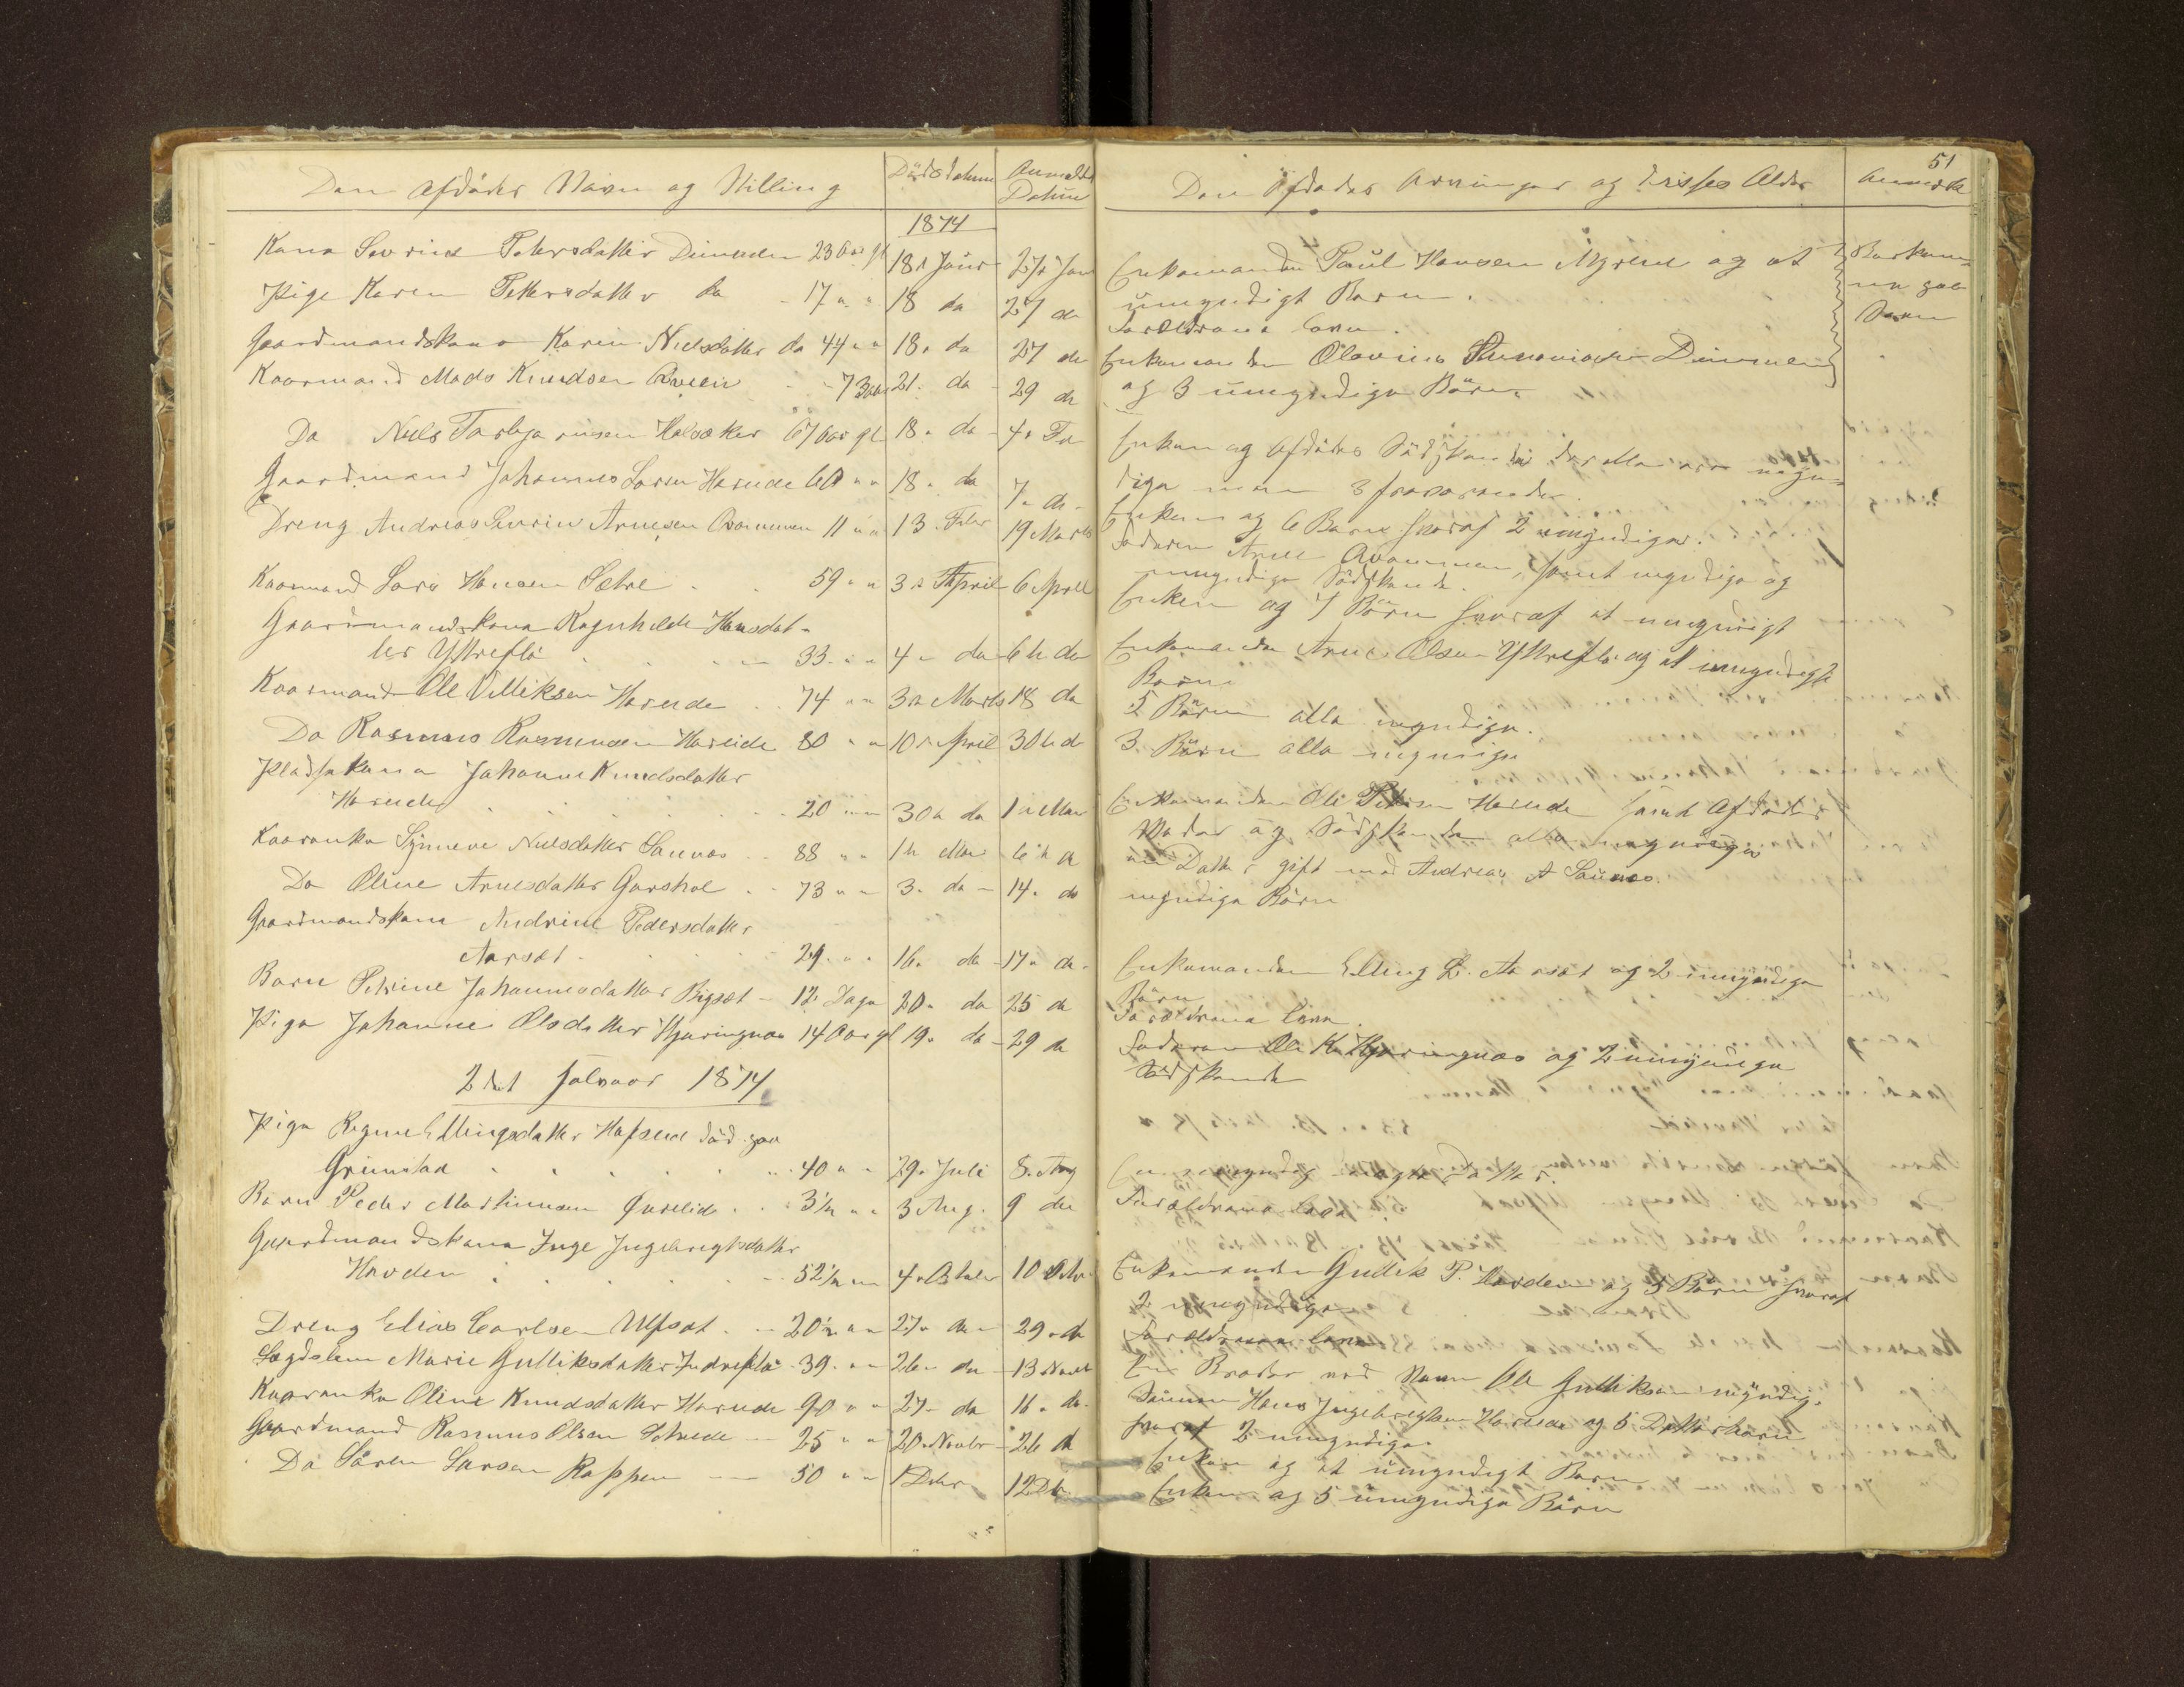 Den afdødes Navn og Stilling
Dødsdatum
Anmeldt Datum
1874
Kona Severine Petersdatter Dimmen 23 Aar gl 18 Janur 27 Jan
Pige Karen Pettersdatter do 17 " " 18 do 27 do
Gaardmandskone Karen Nielsdatter do 44 " " 18 do 27 do
Kaarmand Mads Knudsen 73 Aar 21. do 29 do
Do Niels Hals­aker 67 Aar gl 18. do 4 Fe
Gaardmand Johannes Larsen Hareide 60 " " 18. do 7. do
Dreng Andreas Severin Arnesen Overmmen 11 " " 13. Febr 19 Marts
Kaarmand Lars Hansen Sætre 59 " " 3 April 6 April
Gaardmandskone Ragnhilde Hansdat-
ter Yttreflø 33 " " 4 do 6 do
Kaarmand Ole Velliksen Hareide 74 " " 3 Marts 18 do
Do Rasmus Rasmussen Hareide 80 " " 10 April 30 do
Pladsekone Johanne Knudsdatter
Hareide 20 " " 30 do 1 Mai
Kaarenke Synneve Nielsdatter Saunes 88 " " 1 Mai 6 do
Do Oline Arnesdatter Garshol 73 " " 3. do 14. do
Gaardmandskone Andrine Pedersdatter
Aarset 29 " " 16. do 17. do
Barn Petrine Johannesdatter Rigset 12 Dage 20. do 25 do
Pige Johanne Olsdatter Hjøringnæs 14 Aar gl 19. do 29 do
2det Halvaar 1874
Pige Ragne Ellingsdatter død paa
Grimstad 40 " " 29. Juli 8. Aug
Barn Peder Martinusen Overlid 3½ " " 3 Aug. 9 do
Gaardmandskone Inge Ingebrigtsdatter
Hovden 52½ " " 4 Octuber 10 Octr
Dreng Elias Carlsen Ulfset 20½ " " 27. do 29. do
Lægdslem Marie Gulliksdatter Indreflø 39. " " 26. do 13 Novb
Kaarenke Oline Knudsdatter Hareide 90 " " 27. do 16. do
Gaardmand Rasmus Olsen 25 " " 20. Novbr 26 do
Do Søren Larsen Røppen 50 " " 1 Debr 12 Db
51
Den Afdødes Arvinger og disses Alder
Anmerk
Enkemanden Paul Hansen Myrene og et
umyndigt Barn.
Forældrene leve.
Enkemanden Olavius Dimmen
og 3 umyndige Børn.
Enken og Afdødes Sødskende der alle ere myn-
dige men 3 fraværende.
Enken og 6 Børn hvoraf 2 umyndiger.
Faderen Arne Overmmen, samt myndige og
umyndige Sødskende.
Enken og 7 Børn hvoraf et umyndigt
Enkemanden Arne Olsen Yttreflø og et umyndigt
Barn
5 Børn alle myndige.
3 Børn alle myndige
Enkemanden Ole Hareide samt Afdødes
Moder og Sødskende alle myndige
en Datter gift med Andreas A Saunes.
myndige Børn
Enkemanden Elling L. Aarset og 2 umyndige
Børn
Forældrene leve.
Faderen Ole K. Hjøringnæs og 2 umyndige
Sødskende
En umyndig Datter.
Forældrene leve
Enkemanden Gullik P. Hovden og 5 Børn hvoraf
2 umyndige
Forældrene leve
En Broder ved Navn Ole Gulliksen myndig.
Sønnen Hans Ingebrigtsen Hareide og 5 Datterbørn
hvoraf 2 umyndige.
Enken og et umyndigt Barn
Enken og 5 umyndige Børn